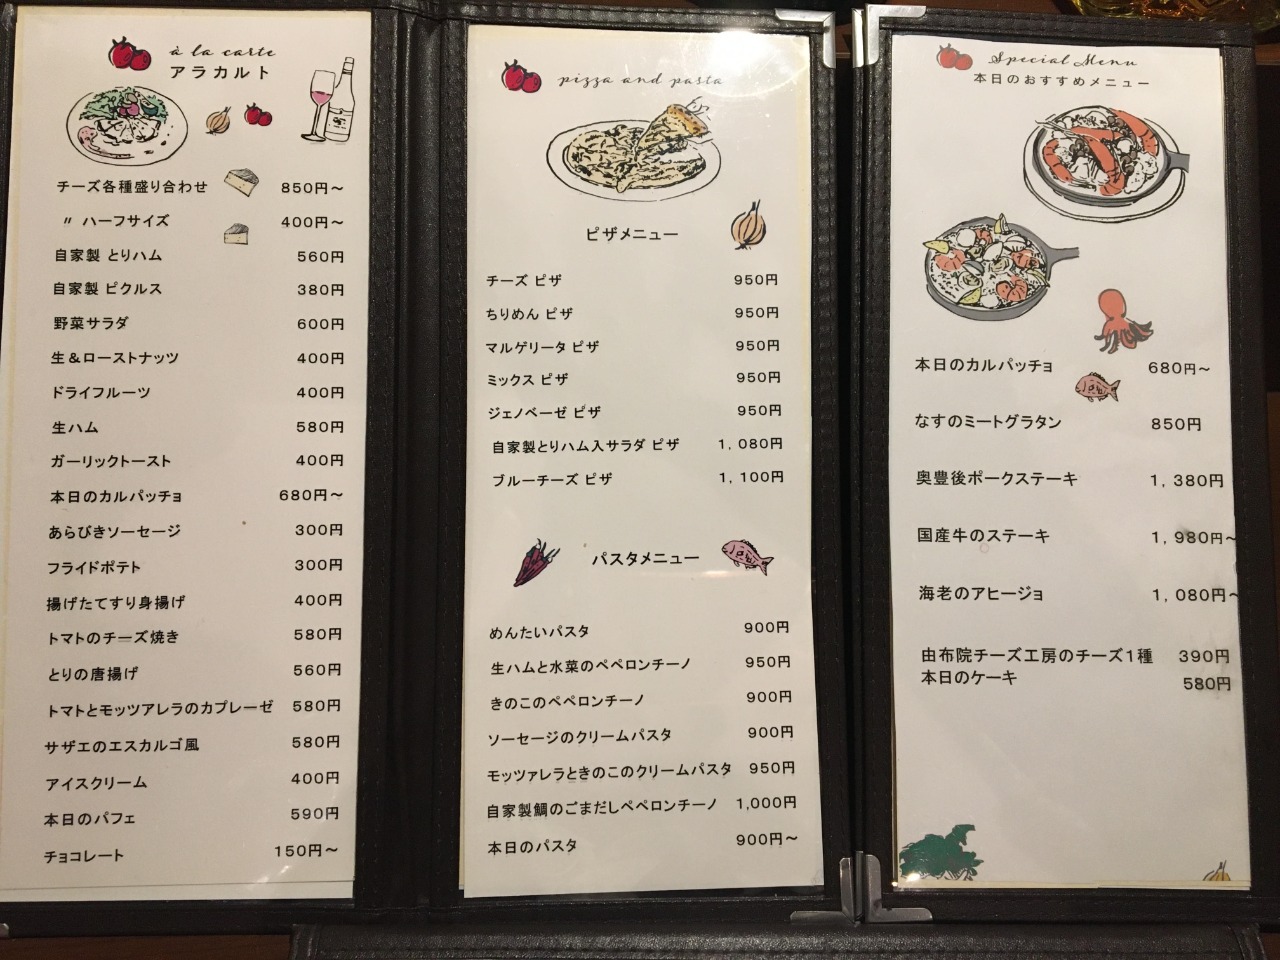 à la carte
アラカルト
チーズ各種盛り合わせ 850円～
〃 ハーフサイズ 400円～
自家製 とりハム 560円
自家製 ピクルス 380円
野菜サラダ 600円
生＆ローストナッツ 400円
ドライフルーツ 400円
生ハム 580円
ガーリックトースト 400円
本日のカルパッチョ 680円～
あらびきソーセージ 300円
フライドポテト 300円
揚げたてすり身揚げ 400円
トマトのチーズ焼き 580円
とりの唐揚げ 560円
トマトとモッツアレラのカプレーゼ 580円
サザエのエスカルゴ風 580円
アイスクリーム 400円
本日のパフェ 590円
チョコレート 150円～
pizza and pasta
ピザメニュー
チーズ ピザ 950円
ちりめん ピザ 950円
マルゲリータ ピザ 950円
ミックス ピザ 950円
ジェノベーゼ ピザ 950円
自家製とりハム入サラダ ピザ 1,080円
ブルーチーズ ピザ 1,100円
パスタメニュー
めんたいパスタ 900円
生ハムと水菜のペペロンチーノ 950円
きのこのペペロンチーノ 900円
ソーセージのクリームパスタ 900円
モッツァレラときのこのクリームパスタ 950円
自家製鯛のごまだしペペロンチーノ 1,000円
本日のパスタ 900円～
Special Menu
本日のおすすめメニュー
本日のカルパッチョ 680円～
なすのミートグラタン 850円
奥豊後ポークステーキ 1,380円
国産牛のステーキ 1,980円～
海老のアヒージョ 1,080円～
由布院チーズ工房のチーズ1種 390円
本日のケーキ 580円